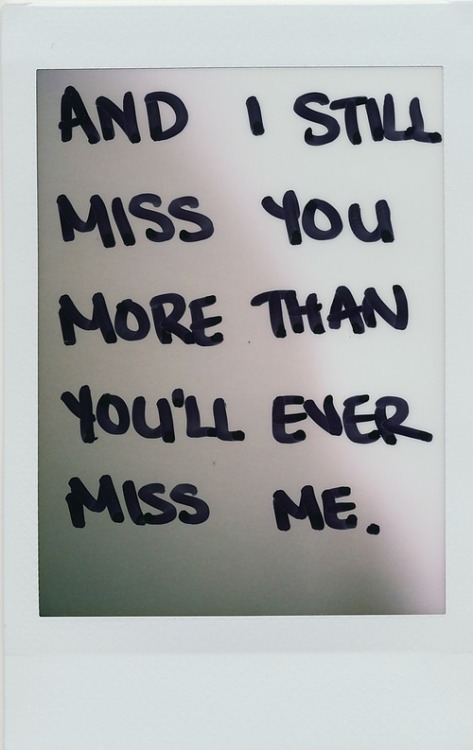 AND I STILL
MISS YOU
MORE THAN
YOU'LL EVER
MISS ME.